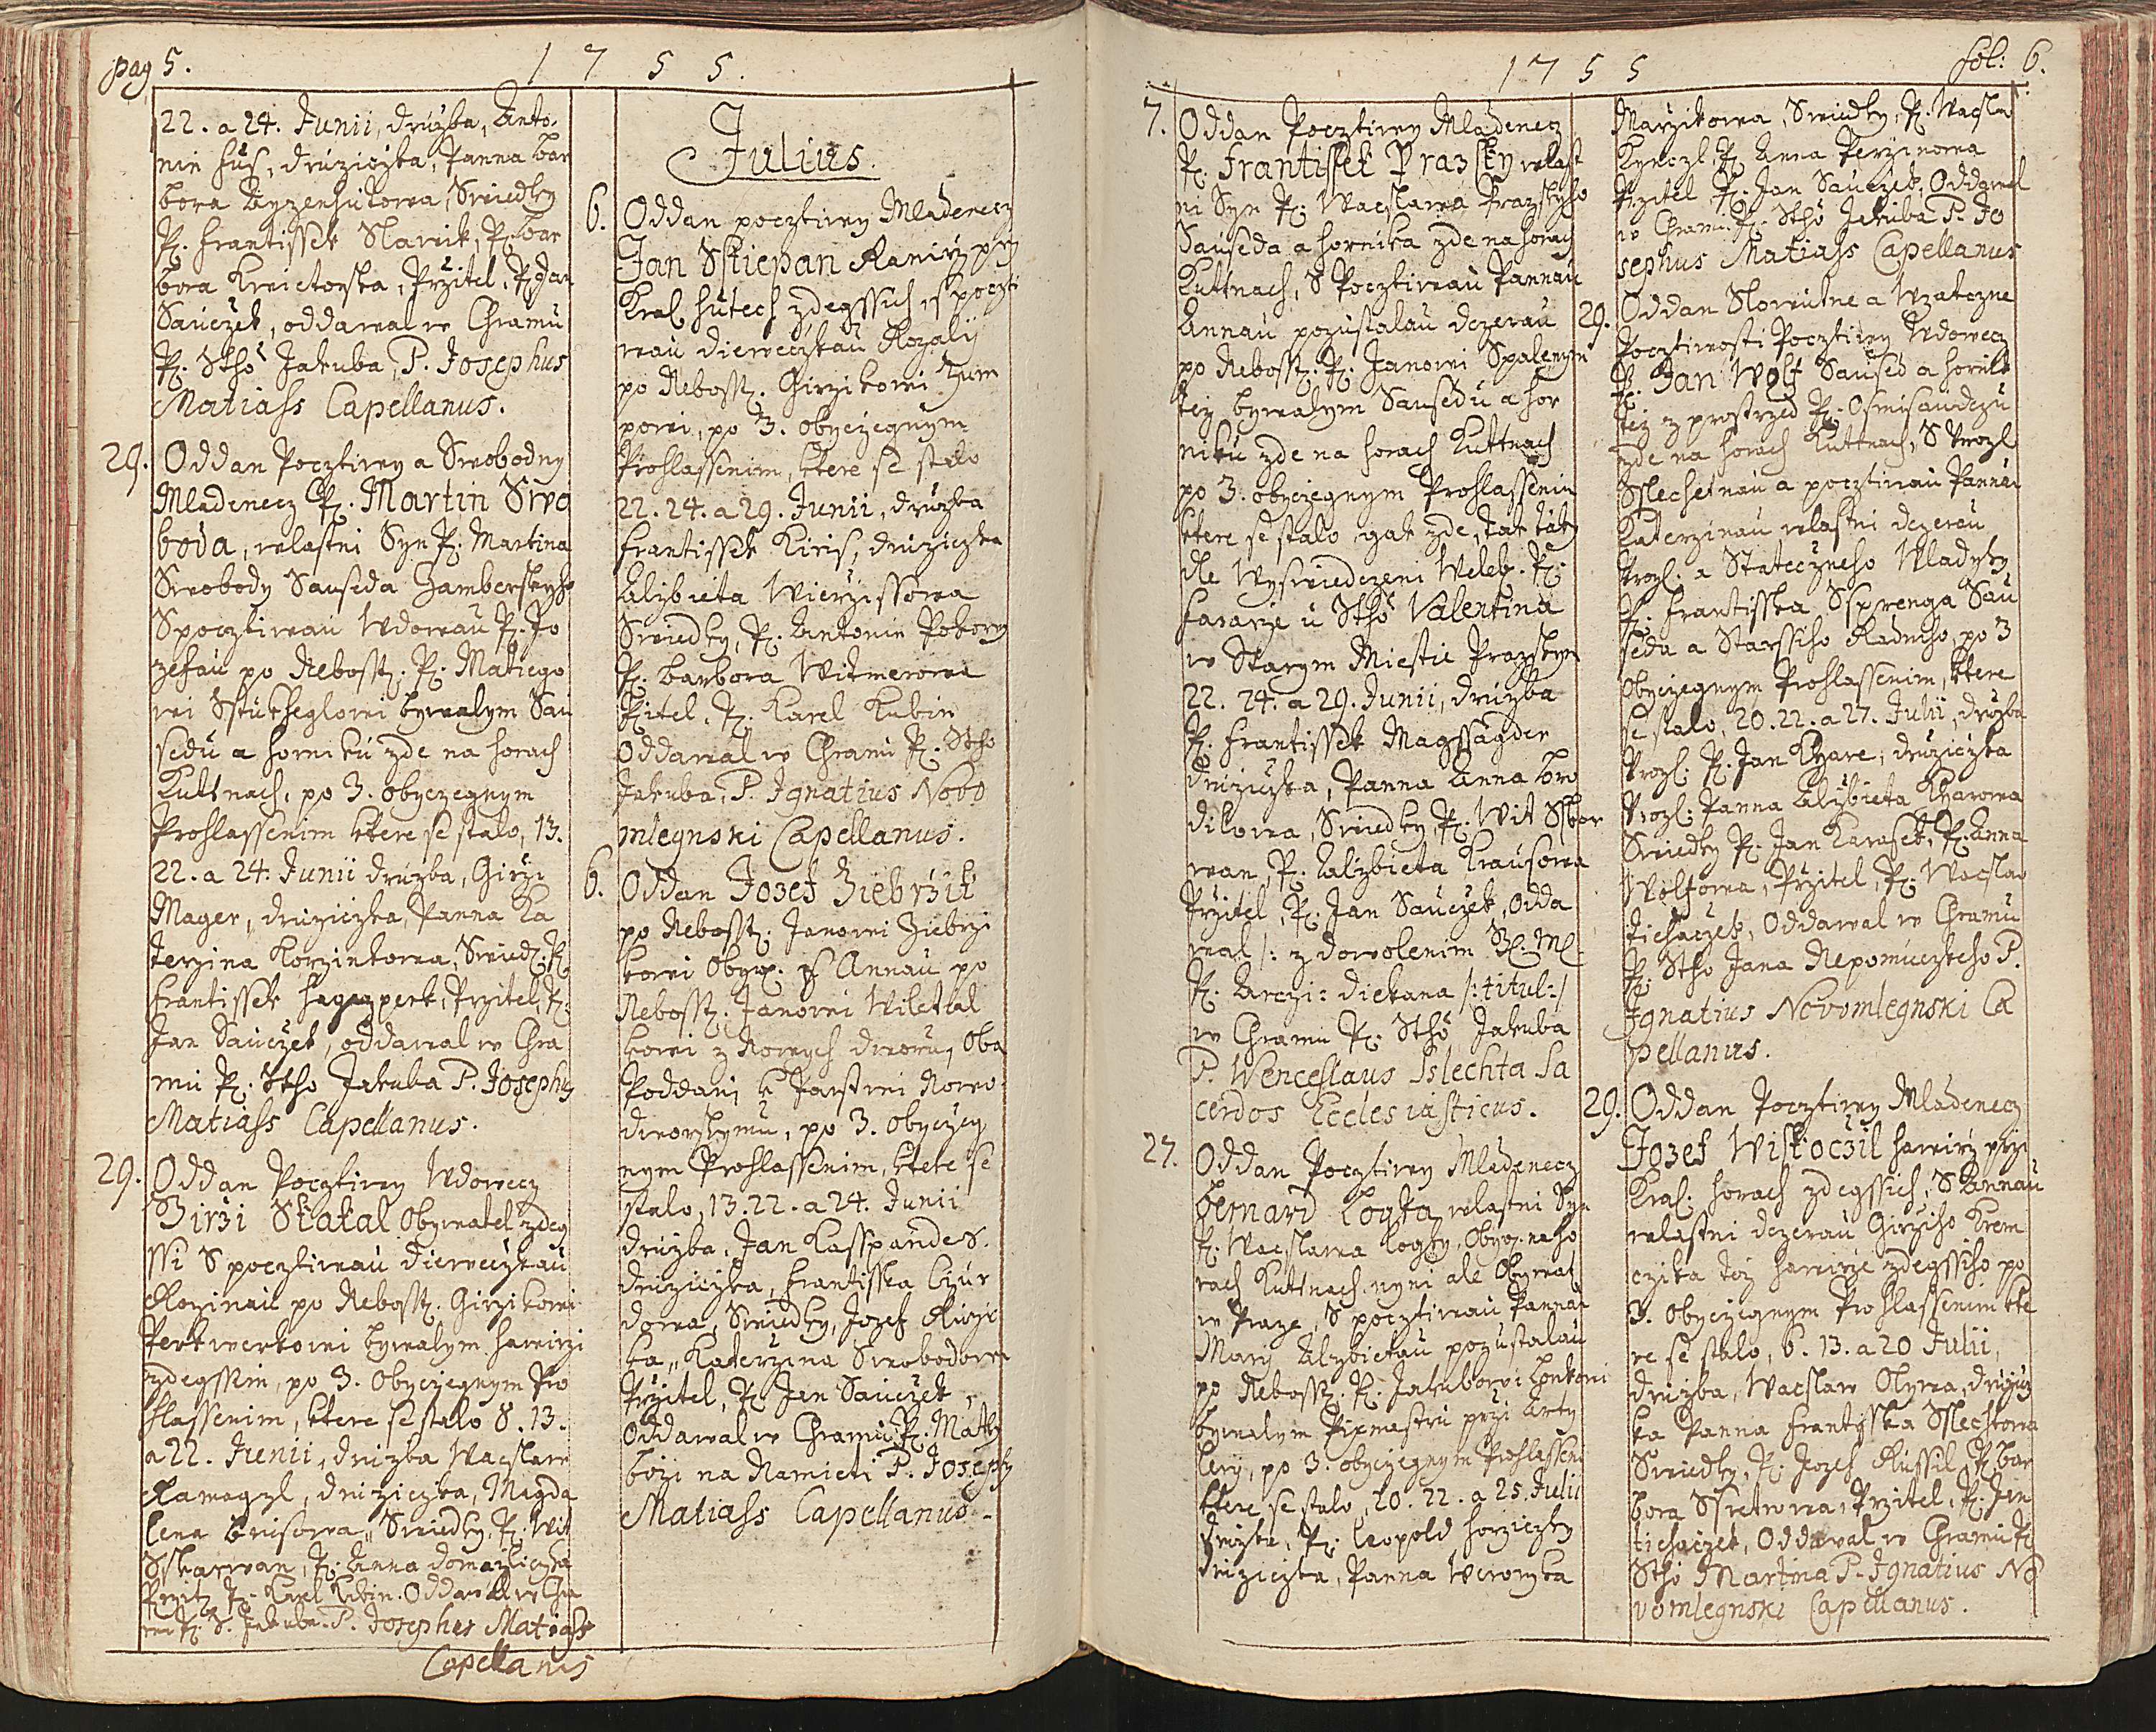 pag 5.
1 7 5 5.
22. a 24. Junii, družba, Anto-
nin Hus, družiczka, Panna Bar
bora Ayzenhutowa, Swiedky
P. Frantissek Slawik, P. Bar
bora Kwietonska, Pržitel, P. Jan
Saučzek, oddawal w Chramu
P. Stho Jakuba, P. Josephus
Matiass Capellanus.
29. Oddan Pocztiwy a Swobodny
Mladenecz P. Martin Swo
boda, wlastni Syn P. Martina
Swobody Sauseda Zamberskyho
S pocztiwau Wdowau P. Jo
zefau po Nebosst. P. Matiego
wi Sstukheglowi bywalym Sau
sedu a horniku zde na horach
Kuttnach, po 3. obyczegnym
Prohlassenim ktere se stalo, 13.
22. a 24. Junii družba, Girži
Mager, družiczka, Panna Ka
teržina Koržinkowa, Swied. P.
Frantissek Pržitel, P.
Jan Sauczek, oddawal w Chra
mu P. Stho Jakuba P. Josephus
Matiass Capellanus.
29. Oddan Pocztiwy Wdowecz
Jirži Skakal Obywatel zdeg
ssi S pocztiwau Diewecžkau
Rozinau po Nebosst. Giržikowi
Perkwerkowi bywalym hawirži
zdegssim, po 3. Obyczegnym Pro
hlassenim, ktere se stalo 8. 13.
a 22. Junii, družba Waczlaw
družiczka, Magda
lena Swiedky, P. Wit
Sskarwan, P. Anna Domazlicka
Pržit. P. Karel Kubin. Oddawal w Chra
mu P. S. Jakuba. P. Josephus Matiass
Capellanus
Julius.
6. Oddan pocztiwy Mladenecz
Jan Sstiepan Kanirž pržj
Kral. hutech zdegssich, s poczti
wau diewecžkau Rozalij
po Nebosst. Giržikowi Kum
powi, po 3. obyczegnym
Prohlassenim, ktere se stalo
22. 24. a 29. Junii, družba
Frantissek Kiris, družiczka
Alžbieta Wieržissowa
Swiedky, P. Antonin Pokorny
P. Barbora Witmerowa
Pržitel. P. Karel Kubin
Oddawal w Chramu P. Stho
Jakuba, P. Ignatius Nobo
mlegnski Capellanus.
6. Oddan Josef Žiebržik
po Nebosst. Janowi Žiebrži
kowi Obyw. s Annau po
Nebosst. Janowi Wiletal
kowi z Nowych dworu, Oba
Poddanj k Panstwi Nowo-
dworskymu, po 3. obyczeg
nym Prohlassenim, ktere se
stalo, 13. 22. a 24. Junii
družba, Jan Kasspandes.
družiczka, Frantisska
dowa, Swiedky, Jozef Ružic
ka, Kateržina Swobodowa
Pržitel, P. Jan Saučzek,
Oddawal w Chramu P. Matky
boži na Namieti P. Joseph.
Matiass Capellanus.
1 7 5 5
fol: 6.
7. Oddan Pocztiwy Mladenecz
P. Frantissek Prazsky wlast
ni Syn P. Waczlawa Prazskyho
Sauseda a hornika zde na horach
Kuttnach, S Pocztiwau Pannau
Annau pozustalau dczerau
po Nebosst. P. Janowi Spalenym
tež bywalym Sausedu a hor
niku zde na horach Kuttnach
po 3. obyczegnym Prohlassenim
ktere se stalo gak zde, tak taky
dle Wyswiedczeni Weleb. P.
Fararže u Stho Valentina
w Starym Miestie Prazskym
22. 24. a 29. Junii, družba
P. Frantissek Magssagder
družiczka, Panna Anna Bro
dilowa, Swiedky, P. Wit Sskar
wan, P. Alžbieta Krausowa
Pržitel, P. Jan Sauczek, Odda
wal /: z dowolenim
P. Arczi: diekana /:titul:/
w Chramu P. Stho Jakuba
P. Wenceslaus Sslechta Sa
cerdos Ecclesiasticus.
27. Oddan Pocztiwy Mladenecz
Bernard Logta wlastni Syn
P. Waczlawa Logty, Obyw. na ho
rach Kuttnach nyni ale Obywat.
w Praze, S pocztiwau Pannau
Marij Alžbietau pozustalau
po Nebosst. P. Jakubowi
bywalym Pixmastru prži Arty
lery, po 3. obyczegnym Prohlasseni
ktere se stalo, 20. 22. a 25. Julii
družba, P. Leopold Horžiczky
družiczka, Panna Weronyka
Maržikowa, Swiedky, P. Waczlaw
P. Anna Peržinowa
Pržitel P. Jan Sauczek, Oddawal
w Chramu P. Stho Jakuba P. Jo
sephus Matiass Capellanus
29. Oddan Slowutne a Wzatczne
Pocztiwosti Pocztiwy Wdowecz
P. Jan Wolf Saused a hornik
tež z prostržed P. Osmisaudczu
zde na horach Kuttnach, S Uroz.
Sslechetnau a pocztiwau Pannau
Kateržinau wlastni dczerau
Uroz. a Stateczneho Wladyky
P. Frantisska Ssprenga Sau
seda a Starssiho Radniho, po 3
obyczegnym Prohlassenim, ktere
se stalo, 20. 22. a 27. Julii, družba
Uroz. P. Jan družiczka
Uroz: Panna Alžbieta
Swiedky P. Jan Karasek, P. Anna
Wolfowa, Pržitel, P. Waczlaw
Tichaczek, Oddawal w Chramu
P. Stho Jana Nepomuczkeho P.
Ignatius Novomlegnski Ca
pellanus.
29. Oddan Pocztiwy Mladenecz
Jozef Wiskoczil hawirž prži
Kral. horach zdegssich, S Annau
wlastni dczerau Giržiho Krom
czika tež hawirže zdegssiho po
3. obyczegnym Prohlassenim kte
re se stalo, 6. 13. a 20 Julii,
družba, Waczlaw Olywa, družicz
ka Panna Frantisska Sslechtowa
Swiedky, P. Jozef Russil, P. Bar
bora Pržitel, P. Jan
Tichaczek, Oddawal w Chramu P.
Stho Martina P. Ignatius No
vomlegnski Capellanus.